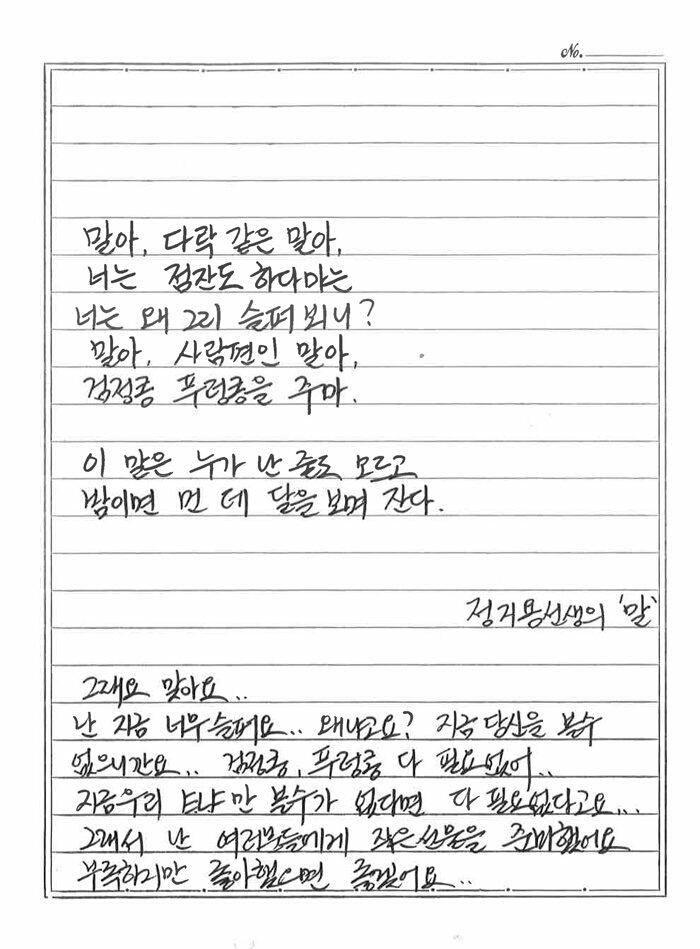 No.
말아, 다락 같은 말아,
너는 점잔도 하다마는
너는 왜 그리 슬퍼 뵈니?
말아, 사람편인 말아,
검정콩 푸렁콩을 주마.
이 말은 누가 난 줄도 모르고
밤이면 먼 데 달을 보며 잔다.
정지용선생의 '말'
그래요 맞아요..
난 지금 너무슬퍼요.. 왜냐고요? 지금 당신을 볼수
없으니깐요.. 검정콩, 푸렁콩 다 필요없어..
지금우리 만 볼수가 없다면 다 필요없다고요...
그래서 난 여러분들에게 작은선물을 준비했어요
부족하지만 좋아했으면 좋겠어요..